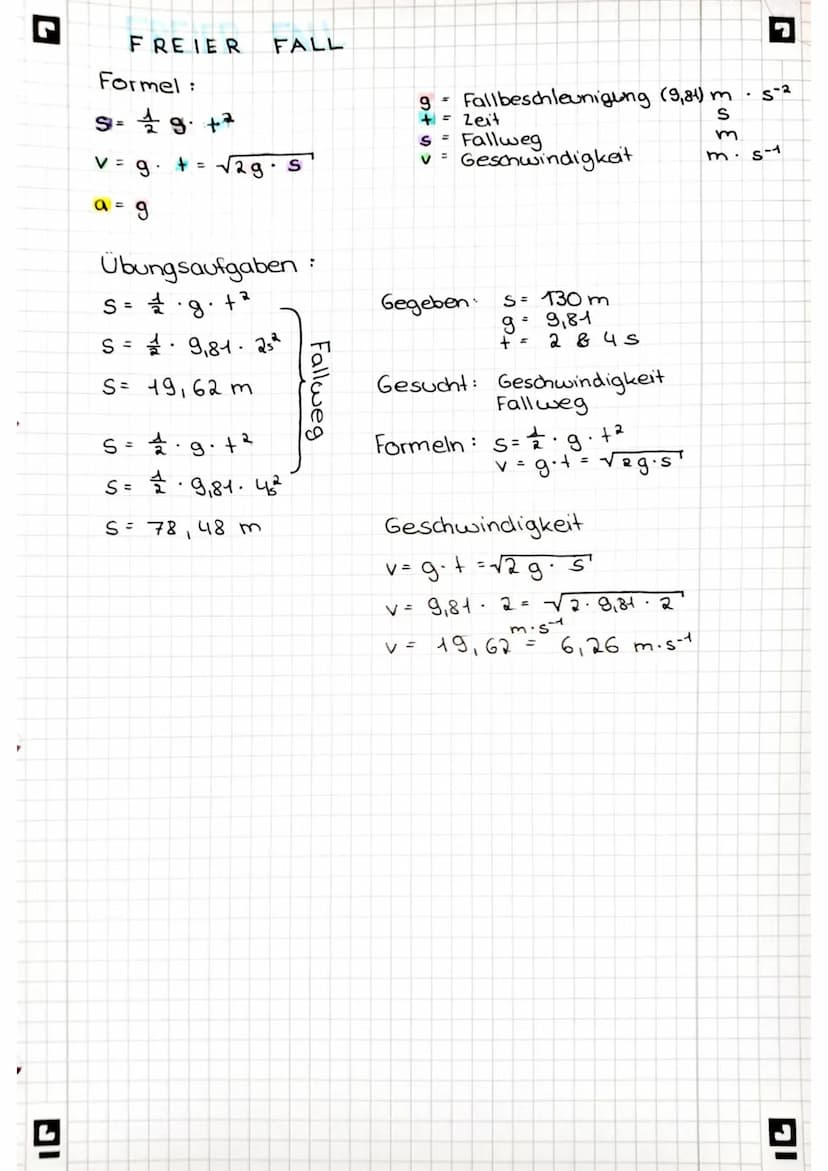 FREIER FALL
Formel:
s = 1/2 g · t²
v = g · t = √2g · s
a = g
g = Fallbeschleunigung (9,81) m · s⁻²
t = Zeit s
s = Fallweg m
v = Geschwindigkeit m · s⁻¹
Übungsaufgaben:
s = 1/2 · g · t²
s = 1/2 · 9,81 · 2s²
s = 19,62 m
s = 1/2 · g · t²
s = 1/2 · 9,81 · 4s²
s = 78,48 m
Fallweg
Gegeben: s = 130 m
g = 9,81
t = 2 & 4 s
Gesucht: Geschwindigkeit
Fallweg
Formeln: s = 1/2 · g · t²
v = g · t = √2g · s
Geschwindigkeit
v = g · t = √2 g · s
v = 9,81 · 2 = √2 · 9,81 · 2
v = 19,62 m·s⁻¹ = 6,26 m·s⁻¹